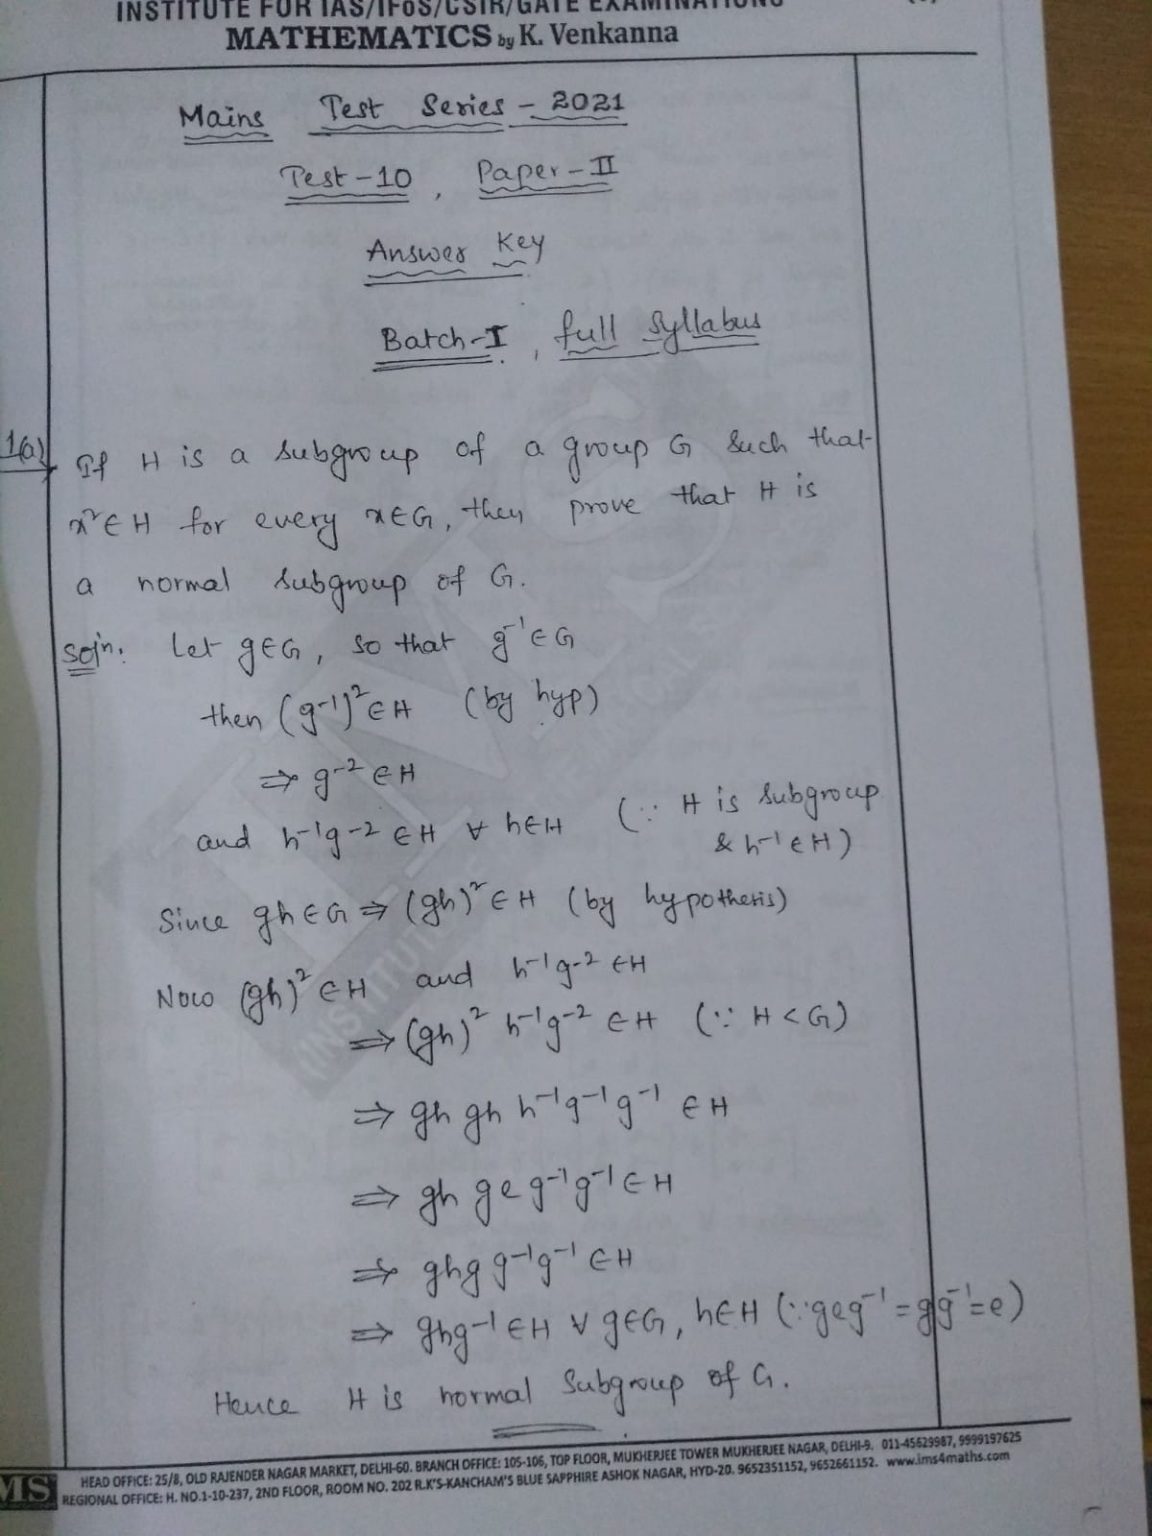 INSTITUTE FOR IAS/IFoS/CSIR/GATE EXAMINATIONS
MATHEMATICS by K. Venkanna
Mains Test Series - 2021
Test-10, Paper-II
Answer Key
Batch-I, full Syllabus
1(a) If H is a subgroup of a group G such that
x² ∈ H for every x ∈ G, then prove that H is
a normal subgroup of G.
Soln. Let g ∈ G, so that g⁻¹ ∈ G
then (g⁻¹)² ∈ H (by hyp)
⇒ g⁻² ∈ H
and h⁻¹g⁻² ∈ H ∀ h ∈ H (∵ H is subgroup
& h⁻¹ ∈ H)
Since gh ∈ G ⇒ (gh)² ∈ H (by hypothesis)
Now (gh)² ∈ H and h⁻¹g⁻² ∈ H
⇒ (gh)² h⁻¹g⁻² ∈ H (∵ H < G)
⇒ gh gh h⁻¹g⁻¹g⁻¹ ∈ H
⇒ gh g e g⁻¹g⁻¹ ∈ H
⇒ ghg g⁻¹g⁻¹ ∈ H
⇒ ghg⁻¹ ∈ H ∀ g ∈ G, h ∈ H (∵ geg⁻¹ = gg⁻¹ = e)
Hence H is normal Subgroup of G.
HEAD OFFICE: 25/8, OLD RAJENDER NAGAR MARKET, DELHI-60. BRANCH OFFICE: 105-106, TOP FLOOR, MUKHERJEE TOWER MUKHERJEE NAGAR, DELHI-9. 011-45629987, 9999197625
REGIONAL OFFICE: H. NO.1-10-237, 2ND FLOOR, ROOM NO. 202 R.K'S-KANCHAM'S BLUE SAPPHIRE ASHOK NAGAR, HYD-20. 9652351152, 9652661152. www.ims4maths.com